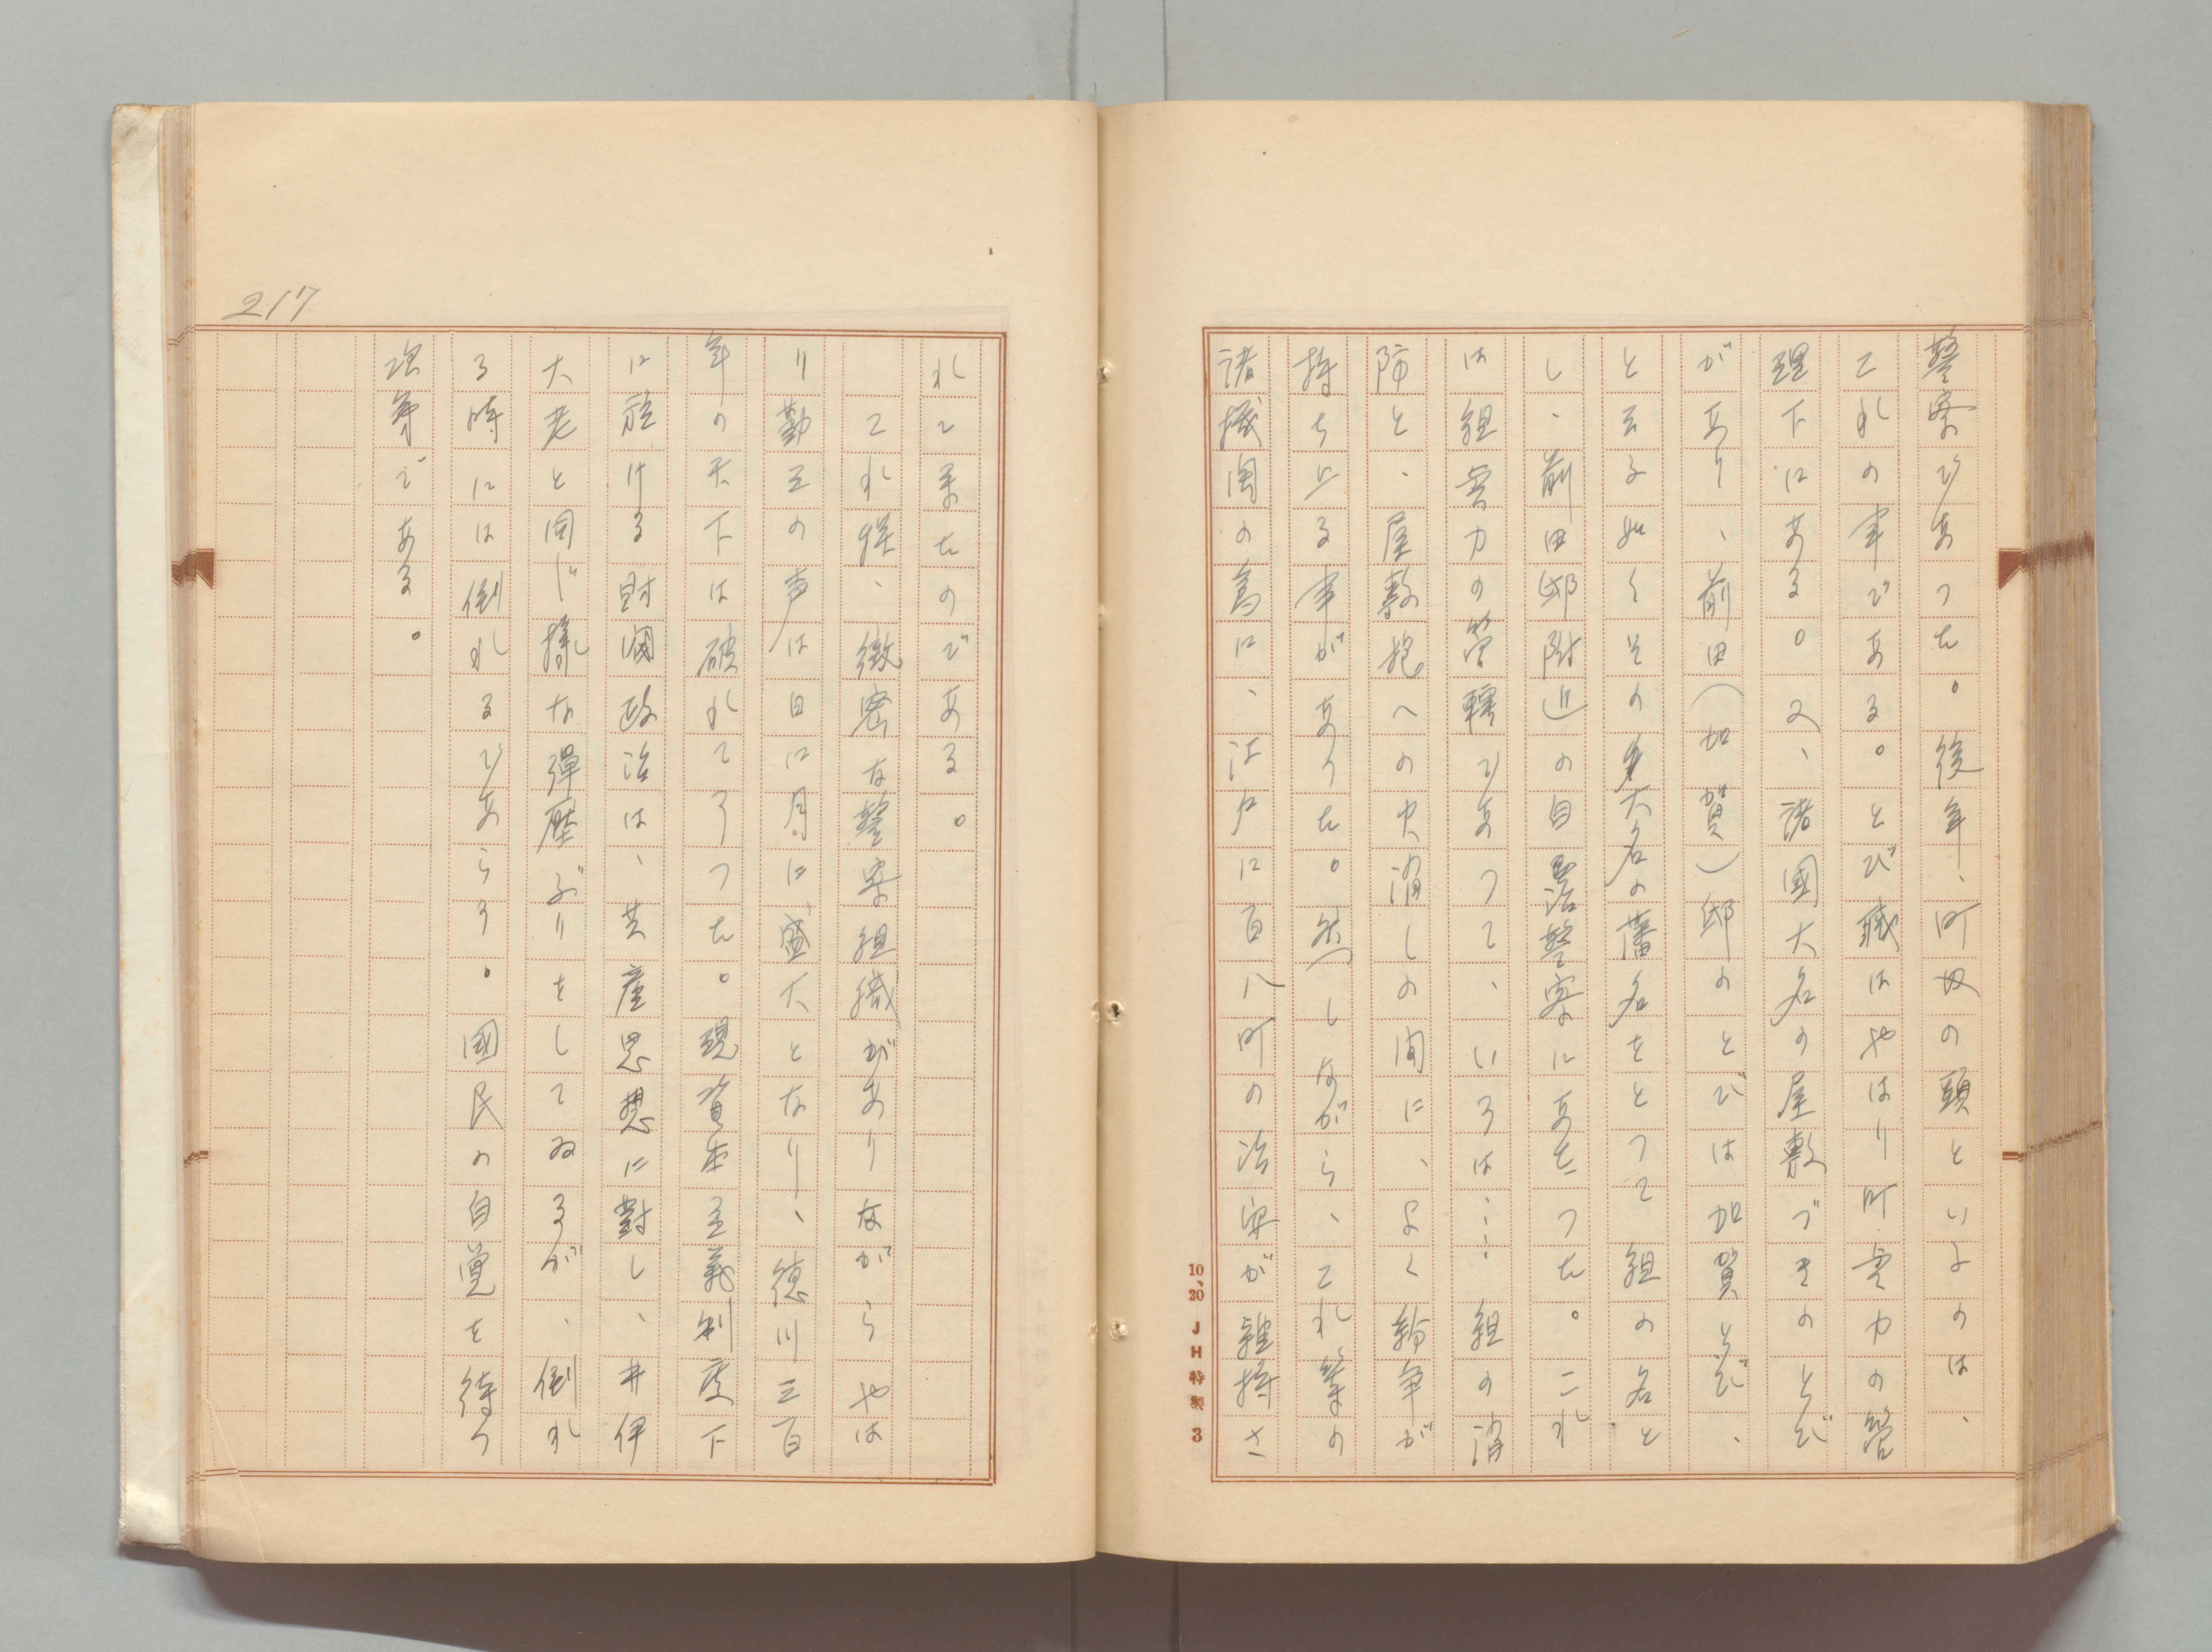 警察であつた。後年、町奴の頭といふのは、
これの事である。とび職はやはり町会力の管
理下にある。又、諸國大名の屋敷づきのとび
があり、前田(加賀)邸のとびは加賀とび、
と云ふ如くその大名の藩名をとつて組の名と
し、前田邸附近の自警察にあたつた。これ
は組会力の管轄であつて、いろは…組の消
防と、屋敷抱への火消しの間に、よく紛争が
持ち上る事があつた。然しながら、これ等の
諸機関の為に、江戸に百八町の治安が維持さ
れて来たのである。
これ程、緻密な警察組織がありながらやは
り勤王の声は日に月に盛大となり、徳川三百
年の天下は破れてろつた。現資本主義制度下
に於ける財閥政治は、共産思想に對し、井伊
大老と同じ樣な彈壓ぶりをしてゐるが、倒れ
る時には倒れるであらう。國民の自覚を待つ
次第である。
217
10、20 JH特製 3